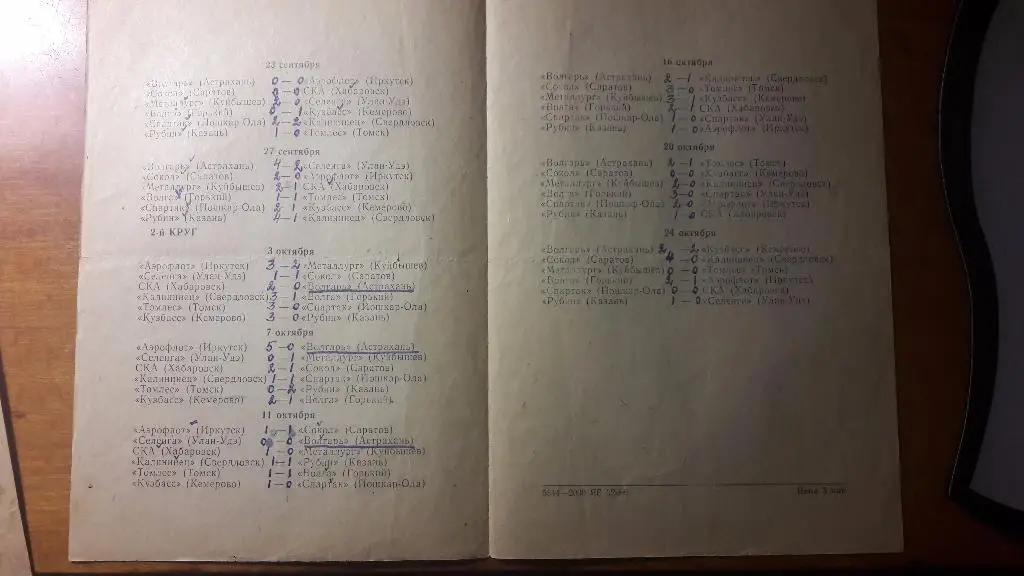 23 сентября
«Волгарь» (Астрахань) 0—0 «Аэрофлот» (Иркутск)
«Сокол» (Саратов) 0—0 СКА (Хабаровск)
«Металлург» (Куйбышев) 2—0 «Селенга» (Улан-Удэ)
«Волга» (Горький) —1 «Кузбасс» (Кемерово)
«Спартак» (Йошкар-Ола) 2—2 «Калининец» (Свердловск)
«Рубин» (Казань) 1—0 «Томлес» (Томск)
27 сентября
«Волгарь» (Астрахань) 4—2 «Селенга» (Улан-Удэ)
«Сокол» (Саратов) 2—0 «Аэрофлот» (Иркутск)
«Металлург» (Куйбышев) 2—1 СКА (Хабаровск)
«Волга» (Горький) 1—1 «Томлес» (Томск)
«Спартак» (Йошкар-Ола) 2—1 «Кузбасс» (Кемерово)
«Рубин» (Казань) 4—1 «Калининец» (Свердловск)
2-й КРУГ
3 октября
«Аэрофлот» (Иркутск) 3—2 «Металлург» (Куйбышев)
«Селенга» (Улан-Удэ) 1—1 «Сокол» (Саратов)
СКА (Хабаровск) 2—0 «Волгарь» (Астрахань)
«Калининец» (Свердловск) 3—1 «Волга» (Горький)
«Томлес» (Томск) 3—0 «Спартак» (Йошкар-Ола)
«Кузбасс» (Кемерово) 3—0 «Рубин» (Казань)
7 октября
«Аэрофлот» (Иркутск) 5—0 «Волгарь» (Астрахань)
«Селенга» (Улан-Удэ) 0—1 «Металлург» (Куйбышев)
СКА (Хабаровск) 2—1 «Сокол» (Саратов)
«Калининец» (Свердловск) 1—1 «Спартак» (Йошкар-Ола)
«Томлес» (Томск) 0—2 «Рубин» (Казань)
«Кузбасс» (Кемерово) 2—1 «Волга» (Горький)
11 октября
«Аэрофлот» (Иркутск) 1—1 «Сокол» (Саратов)
«Селенга» (Улан-Удэ) 0—0 «Волгарь» (Астрахань)
СКА (Хабаровск) 1—0 «Металлург» (Куйбышев)
«Калининец» (Свердловск) 1—1 «Рубин» (Казань)
«Томлес» (Томск) 1—1 «Волга» (Горький)
«Кузбасс» (Кемерово) 1—0 «Спартак» (Йошкар-Ола)
16 октября
«Волгарь» (Астрахань) 2—1 «Калининец» (Свердловск)
«Сокол» (Саратов) 3—0 «Томлес» (Томск)
«Металлург» (Куйбышев) 3—1 «Кузбасс» (Кемерово)
«Волга» (Горький) 2—1 СКА (Хабаровск)
«Спартак» (Йошкар-Ола) 1—0 «Спартак» (Улан-Удэ)
«Рубин» (Казань) 1—0 «Аэрофлот» (Иркутск)
20 октября
«Волгарь» (Астрахань) 2—1 «Томлес» (Томск)
«Сокол» (Саратов) 0—0 «Кузбасс» (Кемерово)
«Металлург» (Куйбышев) 2—0 «Калининец» (Свердловск)
«Волга» (Горький) 3—0 «Спартак» (Улан-Удэ)
«Спартак» (Йошкар-Ола) 2—0 «Аэрофлот» (Иркутск)
«Рубин» (Казань) 1—0 СКА (Хабаровск)
24 октября
«Волгарь» (Астрахань) 2—2 «Кузбасс» (Кемерово)
«Сокол» (Саратов) 4—0 «Калининец» (Свердловск)
«Металлург» (Куйбышев) 0—0 «Томлес» (Томск)
«Волга» (Горький) 2—1 «Аэрофлот» (Иркутск)
«Спартак» (Йошкар-Ола) 0—0 СКА (Хабаровск)
«Рубин» (Казань) 1—0 «Селенга» (Улан-Удэ)
Цена 3 коп.